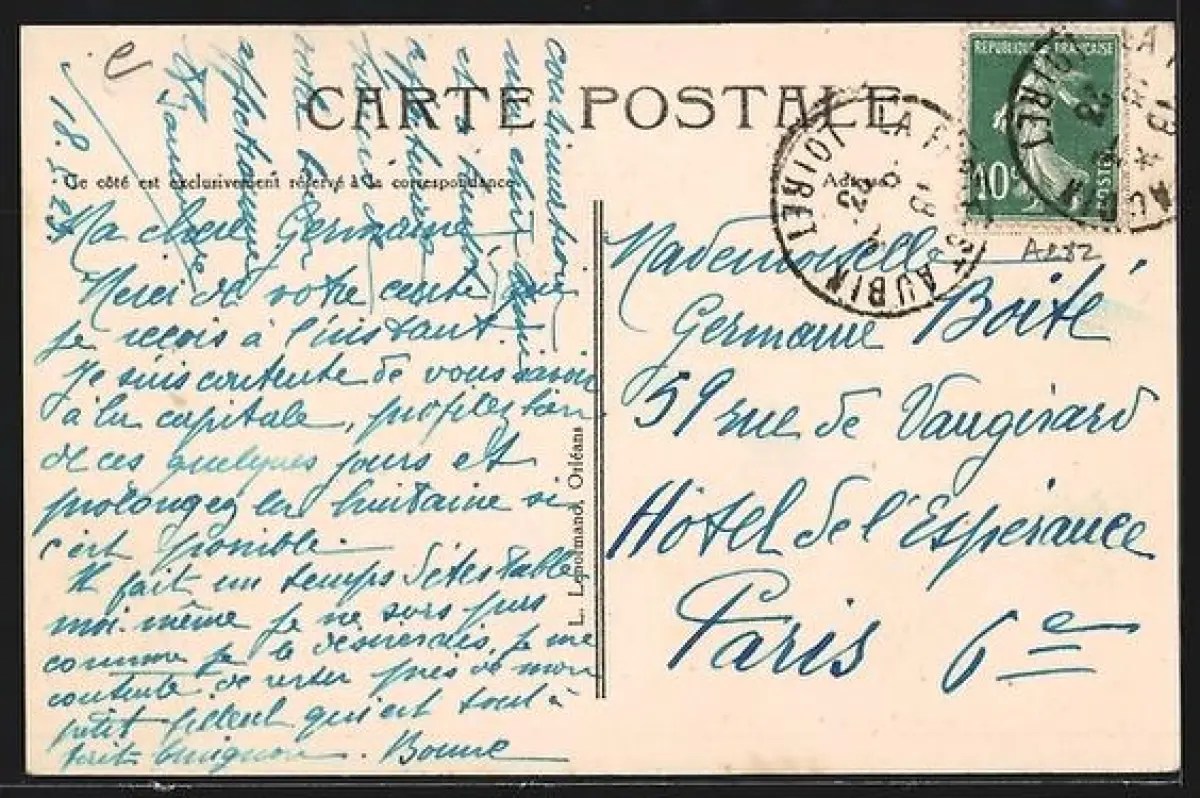 CARTE POSTALE
Ce côté est exclusivement réservé à la correspondance
Adresse
RÉPUBLIQUE FRANÇAISE
10c
POSTES
LA F ST AUBIN
LOIRET
A282
18.2.23
Ma chère Germaine
Merci de votre carte que
je reçois à l'instant.
Je suis contente de vous savoir
à la capitale, profitez bien
de ces quelques jours et
prolongez la huitaine si
c'est possible.
Il fait un temps détestable,
moi-même je ne sors pas
comme je le désirerais, je me
contente de rester près de mon
petit filleul qui est tout à
fait mignon. Bonne
continuation
et à tantôt
affectueux
affectionnée
L. Lenormand, Orléans
Mademoiselle
Germaine Boité
59 rue de Vaugirard
Hôtel de l'Espérance
Paris 6e